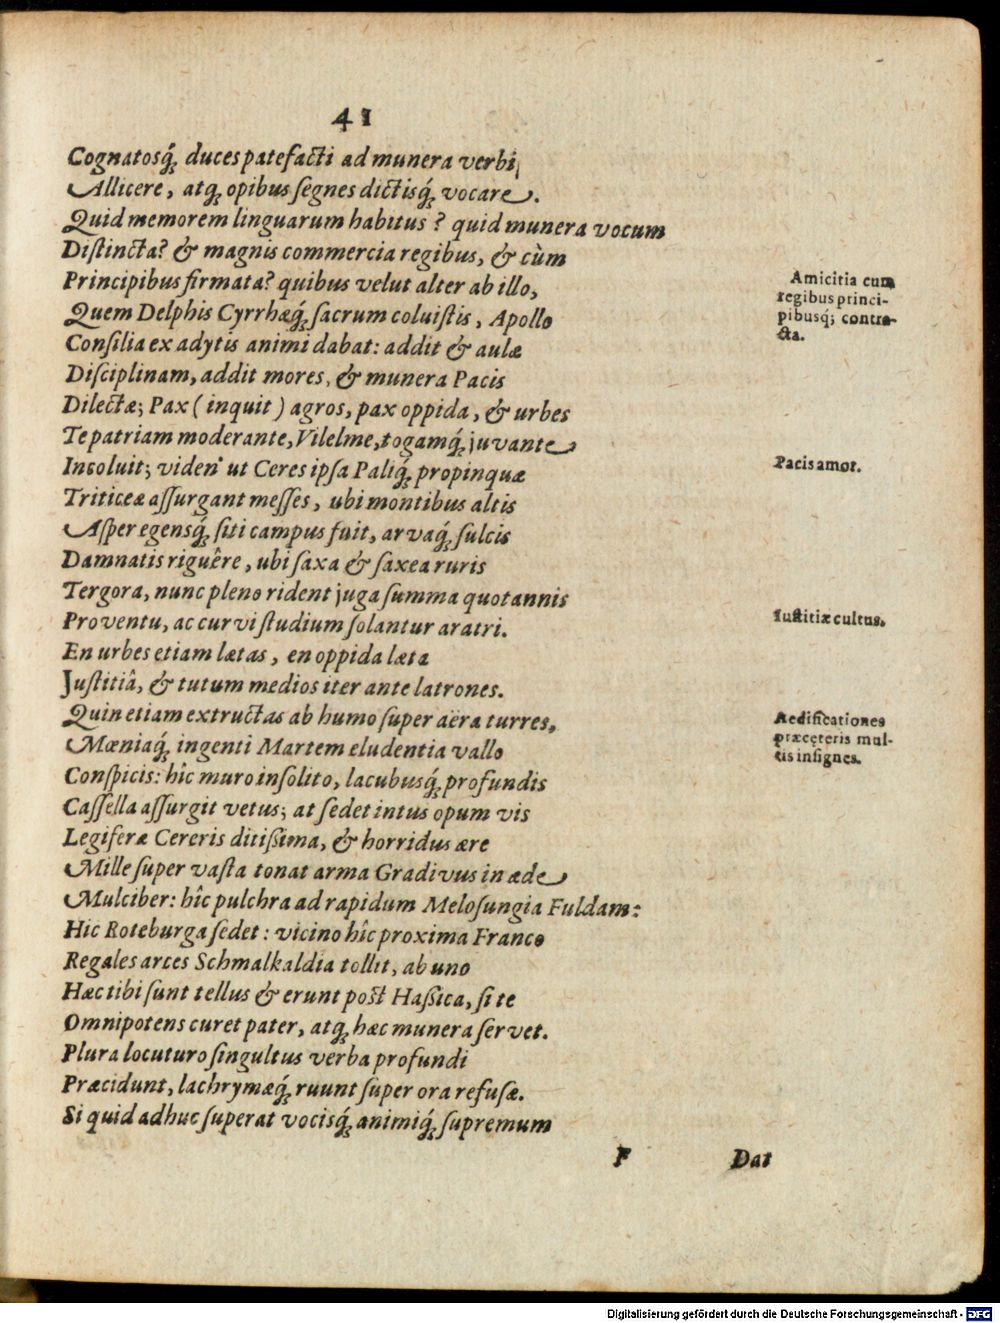 41
Cognatosq́; duces patefacti ad munera verbi
Allicere, atq; opibus ſegnes dictisq́; vocare.
Quid memorem linguarum habitus? quid munera vocum
Diſtincta? & magnis commercia regibus, & cùm
Principibus firmata? quibus velut alter ab illo,
Quem Delphis Cyrrhæq́; ſacrum coluiſtis, Apollo
Conſilia ex adytis animi dabat: addit & aulæ
Diſciplinam, addit mores, & munera Pacis
Dilectæ; Pax (inquit) agros, pax oppida, & urbes
Te patriam moderante, Vilelme, togamq́; juvante
Incoluit; viden' ut Ceres ipſa Paliq́; propinquæ
Triticeæ aſſurgant meſſes, ubi montibus altis
Aſper egensq́; ſiti campus fuit, arvaq́; ſulcis
Damnatis riguêre, ubi ſaxa & ſaxea ruris
Tergora, nunc pleno rident juga ſumma quotannis
Proventu, ac curvi ſtudium ſolantur aratri.
En urbes etiam lætas, en oppida læta
Juſtitiâ, & tutum medios iter ante latrones.
Quin etiam extructas ab humo ſuper aëra turres,
Mæniaq́; ingenti Martem eludentia vallo
Conſpicis: hîc muro inſolito, lacubusq́; profundis
Caſſella aſſurgit vetus; at ſedet intus opum vis
Legiferæ Cereris ditißima, & horridus ære
Mille ſuper vaſta tonat arma Gradivus in æde
Mulciber: hîc pulchra ad rapidum Meloſungia Fuldam:
Hic Roteburga ſedet: vicino hîc proxima Franco
Regales arces Schmalkaldia tollit, ab uno
Hæc tibi ſunt tellus & erunt poſt Haßica, ſi te
Omnipotens curet pater, atq; hæc munera ſervet.
Plura locuturo ſingultus verba profundi
Præcidunt, lachrymæq́; ruunt ſuper ora refuſæ.
Si quid adhuc ſuperat vocisq́; animiq́; ſupremum
F Dat
Amicitia cum
regibus princi-
pibusq; contra-
cta.
Pacis amor.
Iuſtitiæ cultus.
Aedificationes
præ ceteris mul-
tis inſignes.
Digitalisierung gefördert durch die Deutsche Forschungsgemeinschaft - DFG